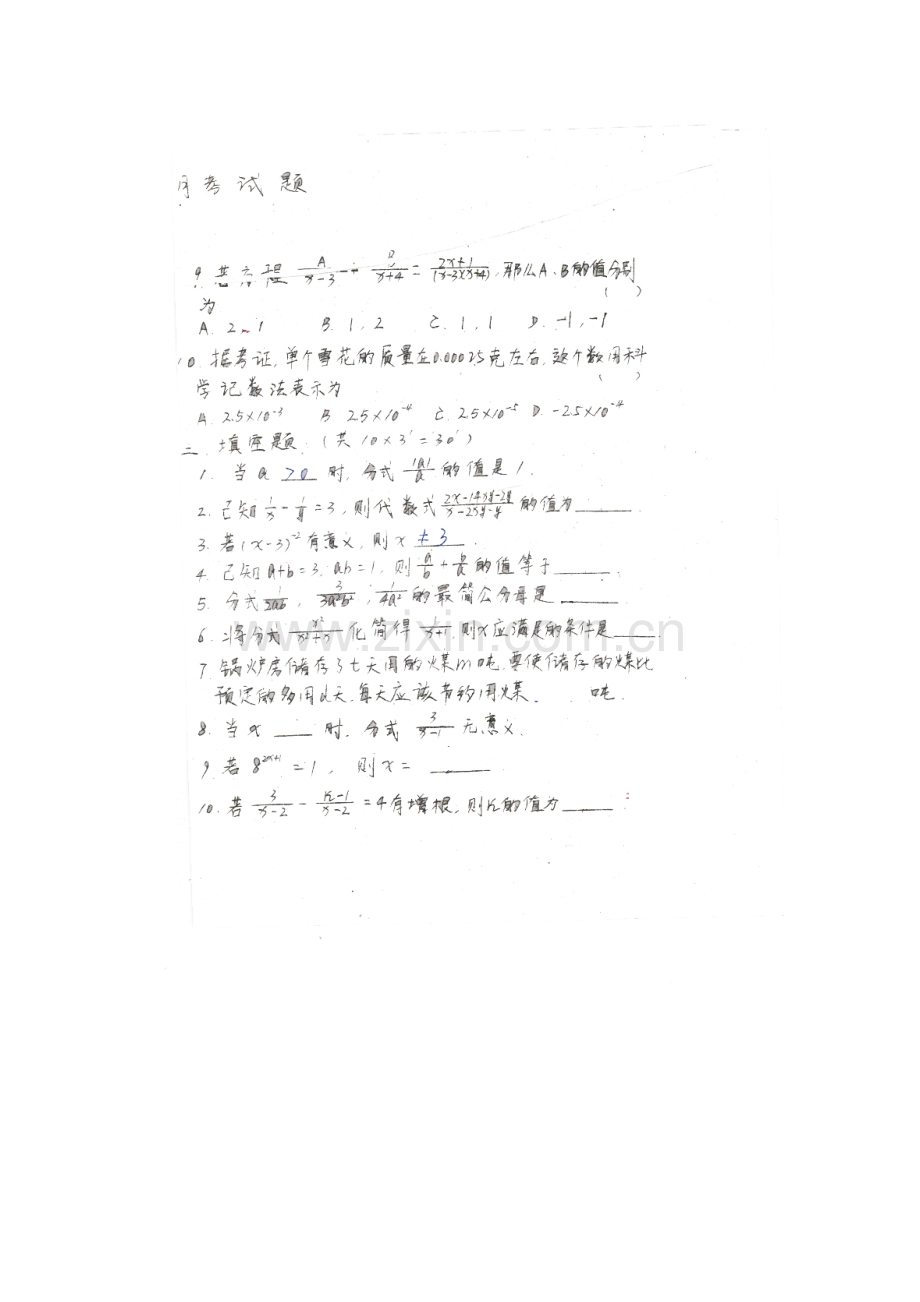 月考试题
9. 若方程 A/(x-3) + B/(x+4) = (2x+1)/((x-3)(x+4)), 那么A、B的值分别
为 ( )
A. 2、1 B. 1, 2 C. 1, 1 D. -1, -1
10. 据考证, 单个雪花的质量在0.00025克左右, 这个数用科
学记数法表示为 ( )
A. 2.5×10⁻³ B. 2.5×10⁻⁴ C. 2.5×10⁻⁵ D. -2.5×10⁻⁴
二. 填空题. (共10×3'=30')
1. 当a >0 时, 分式 |a|/a 的值是1.
2. 已知 1/x - 1/y = 3, 则代数式 (2x-14xy-2y)/(x-2xy-y) 的值为
3. 若(x-3)⁻²有意义, 则x ≠3 .
4. 已知a+b=3. ab=1, 则 a/b + b/a 的值等于
5. 分式 1/2ab, 3/3a²b², 1/4a² 的最简公分母是
6. 将分式 x²/(x²+x) 化简得 x/(x+1), 则x应满足的条件是
www.zixin.com.cn
7. 锅炉房储存了t天用的煤m吨, 要使储存的煤比
预定的多用d天, 每天应该节约用煤 吨.
8. 当x 时, 分式 3/(x-1) 无意义.
9. 若 8²ˣ⁺¹ = 1, 则x =
10. 若 3/(x-2) - (k-1)/(x-2) = 4有增根, 则k的值为